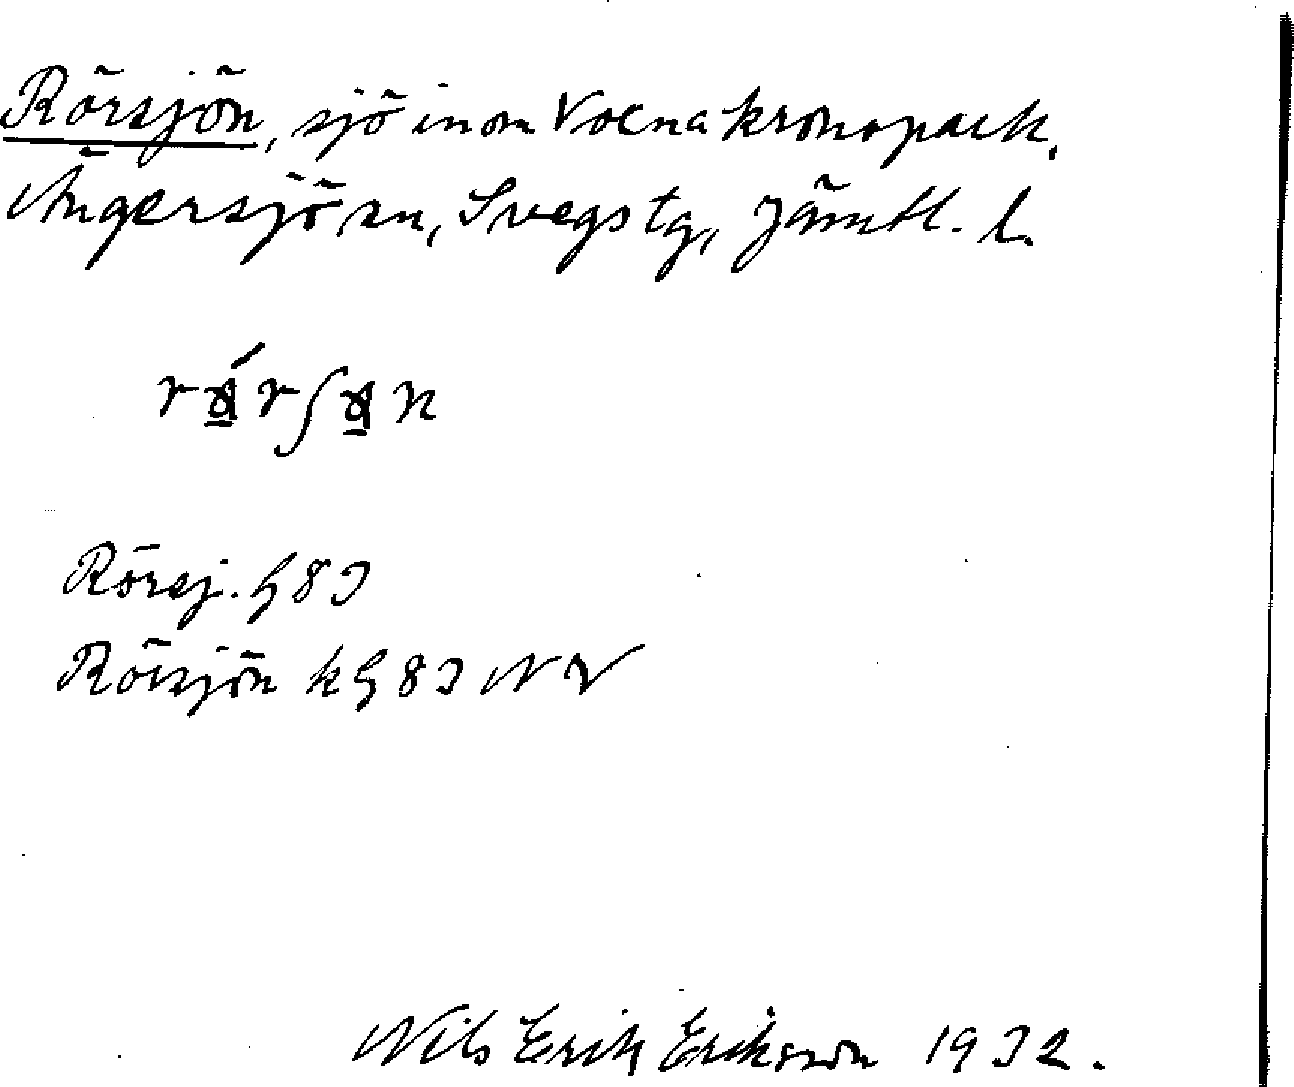 Rörsjön, sjö inom Voxna kronopark,
Ängersjö sn, Svegs tg, Jämtl. l.
Rörsj. G 83
Rörsjön k G 83 NV
Nils Erik Erikson 1932.